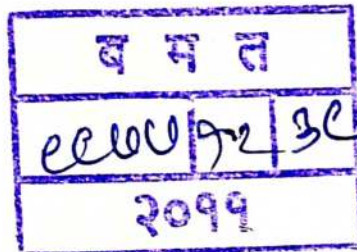 ब म त
९९७७ १२ ३९
२०११